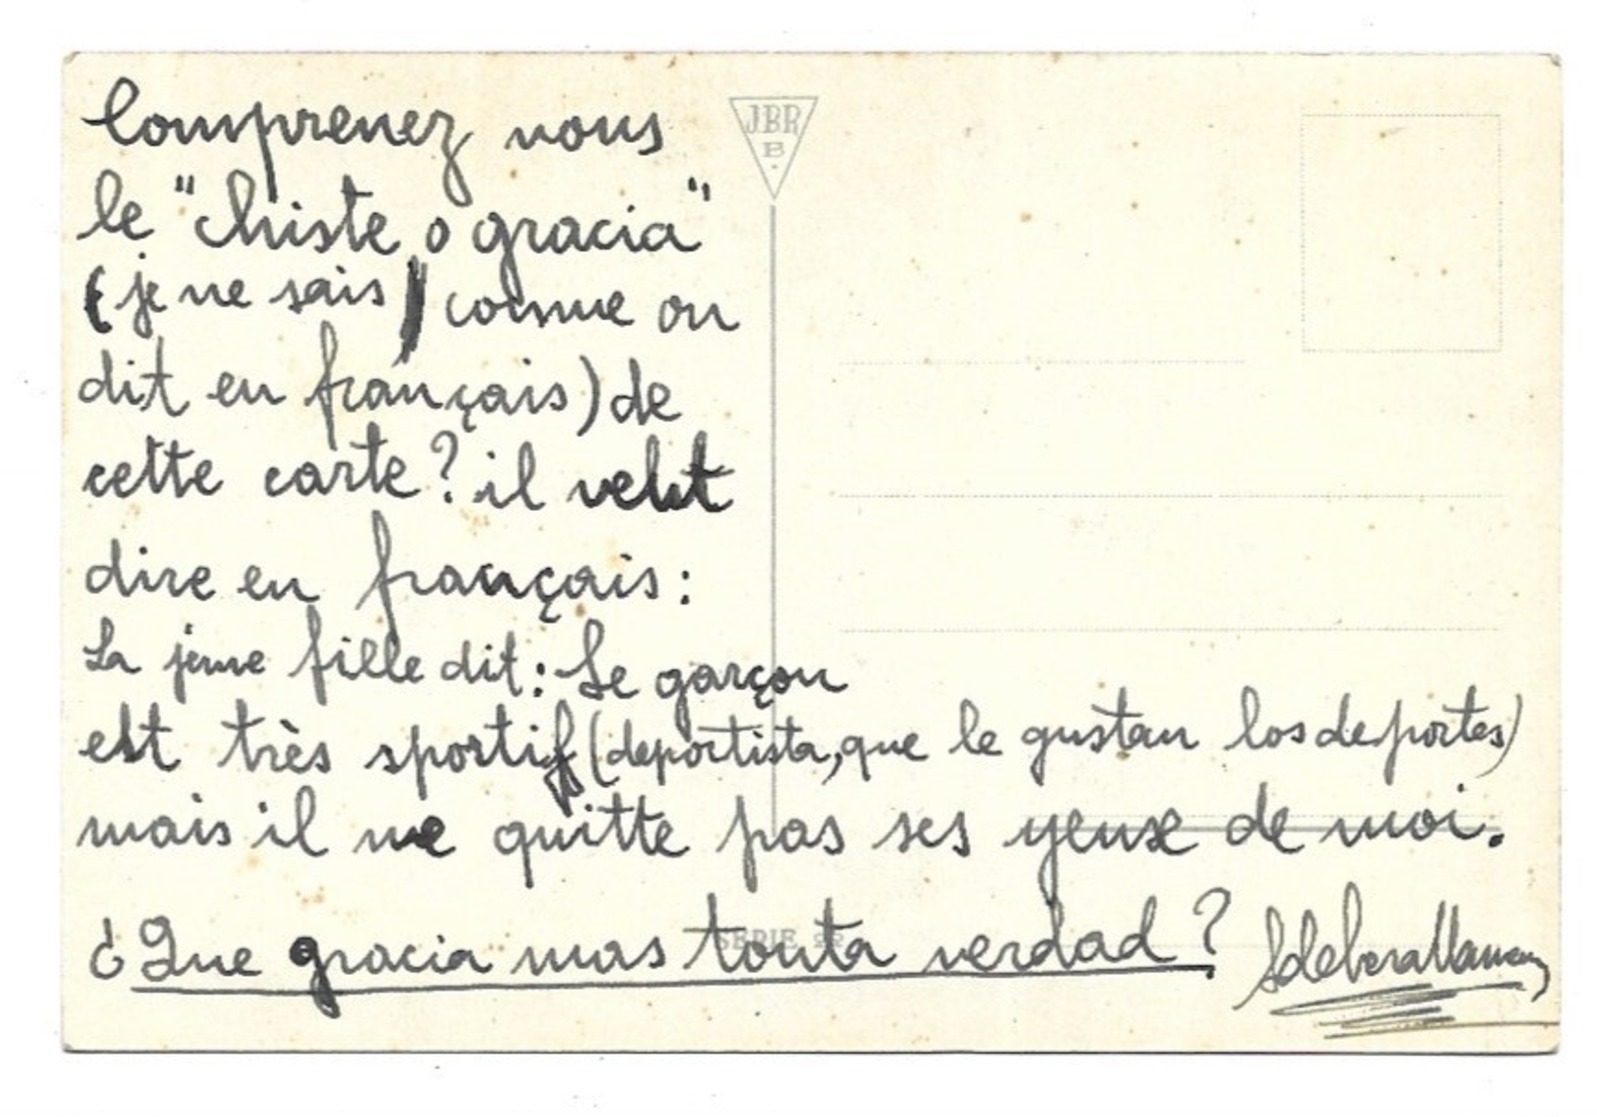 JBR
B
Comprenez vous
le "chiste o gracia"
(je ne sais) comme on
dit en français) de
cette carte? il veut
dire en français:
La jeune fille dit: Le garçon
est très sportif (deportista, que le gustan los deportes)
mais il ne quitte pas ses yeux de moi.
¿Que gracia mas tonta verdad?
SERIE